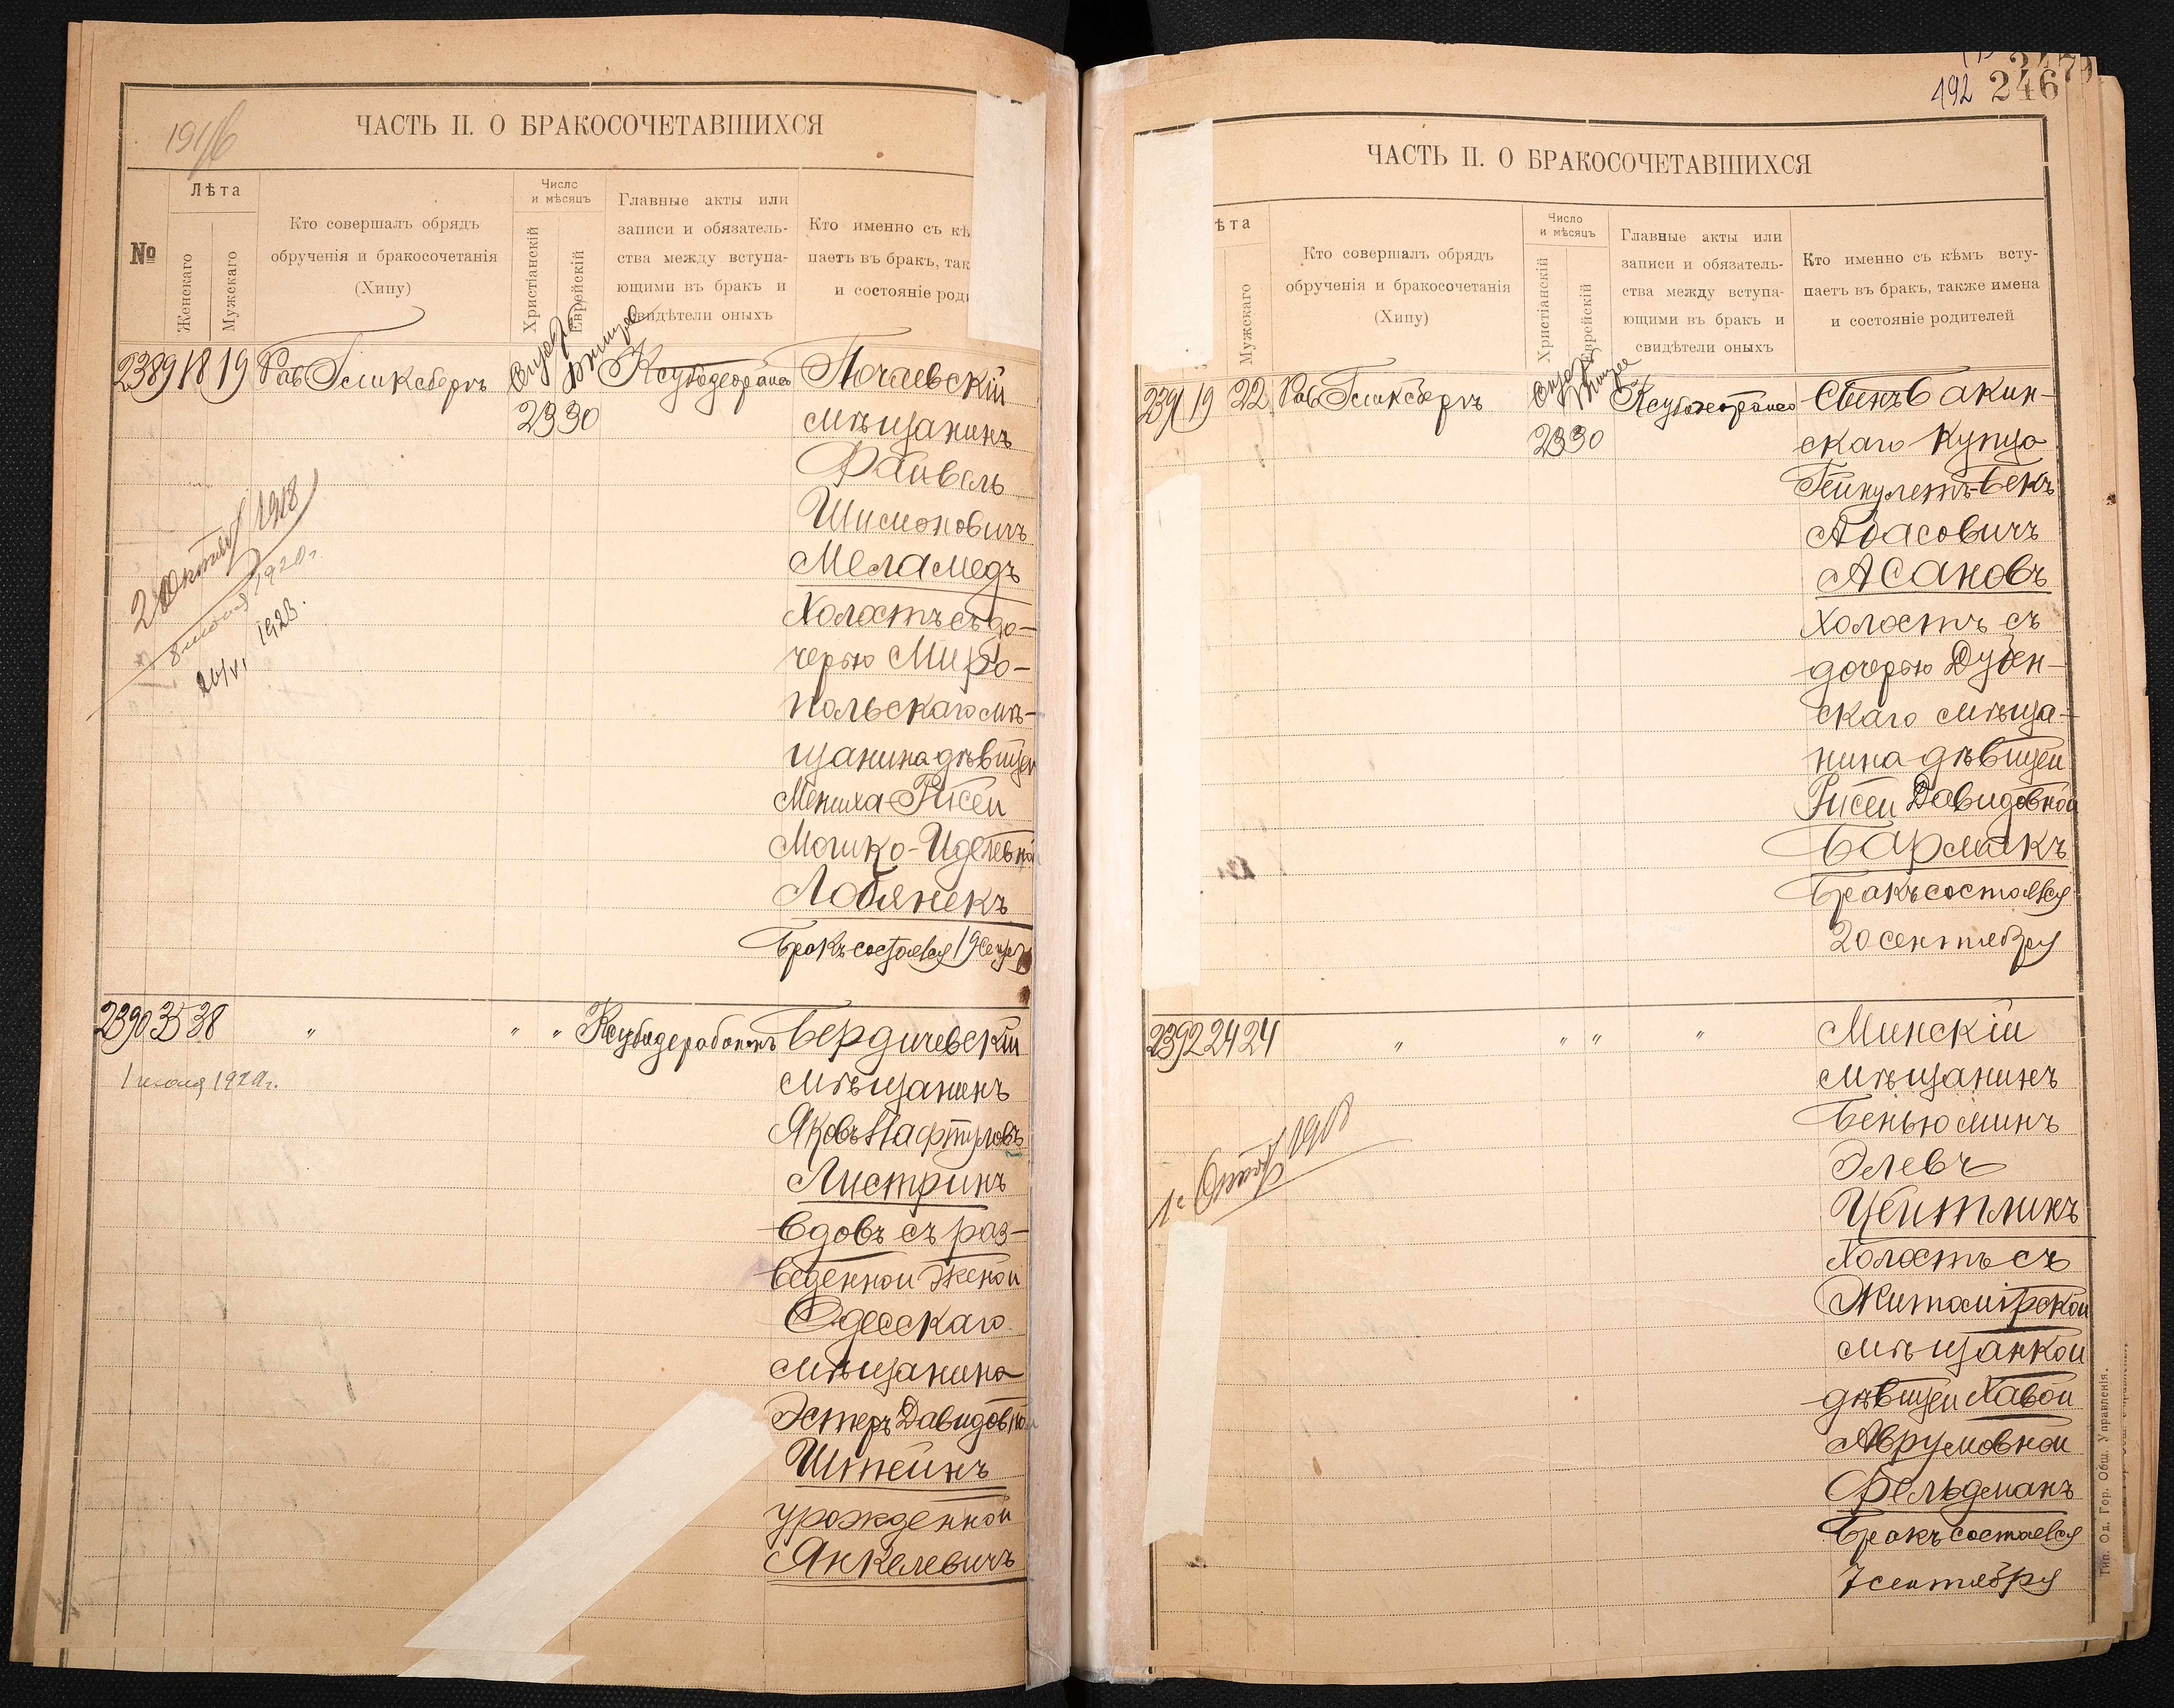 1916
ЧАСТЬ II. О БРАКОСОЧЕТАВШИХСЯ
№
Лѣта
Женскаго
Мужскаго
Кто совершалъ обрядъ
обрученія и бракосочетанія
(Хипу)
Число
и мѣсяцъ
Христіанскій
Еврейскій
Главные акты или
записи и обязатель-
ства между вступа-
ющими въ бракъ и
свидѣтели оныхъ
Кто именно съ кѣ
паетъ въ бракъ, так
и состояніе роди
2389 18 19 Рав Гликсбергъ
23 30
Почаевскій
мѣщанинъ
Файвель
Шимоновичъ
Меламедъ
Холостъ съ до-
черью Миро-
польскаго мѣ-
щанина дѣвицей
Мениха-Рисей
Мошко-Иделевной
Лобянекъ
Бракъ состоялся 19
2 Октября 1918
1920 г.
26/VI 1923.
2390 35 38 " " "
1 июля 1920 г.
Бердичевскій
мѣщанинъ
Яковъ Нафтуловъ
Листринъ
Вдовъ съ раз-
веденной женой
Одесскаго
мѣщанина
Эстеръ Давидовной
Штейнъ
урожденной
Янкелевичъ
192 246
247
ЧАСТЬ II. О БРАКОСОЧЕТАВШИХСЯ
ѣта
Мужскаго
Кто совершалъ обрядъ
обрученія и бракосочетанія
(Хипу)
Число
и мѣсяцъ
Христіанскій
Еврейскій
Главные акты или
записи и обязатель-
ства между вступа-
ющими въ бракъ и
свидѣтели оныхъ
Кто именно съ кѣмъ всту-
паетъ въ бракъ, также имена
и состояніе родителей
2391 19 22 Рав Гликсбергъ
23 30
Сынъ Бакин-
скаго купца
бекъ
Абасовичъ
Асановъ
Холостъ съ
дочерью Дубен-
скаго мѣща-
нина дѣвицей
Рисей Давидовной
Бармакъ
Бракъ состоялся
20 сентября
2392 24 24 " " " "
1 1918
Минскій
мѣщанинъ
Беньюминъ
Элевъ
Цейтлинъ
Холостъ съ
Житомірской
мѣщанкой
дѣвицей Хавой
Аврумовной
Фельдманъ
Бракъ состоялся
7 сентября
Тип. Од. Гор. Общ. Управленія.